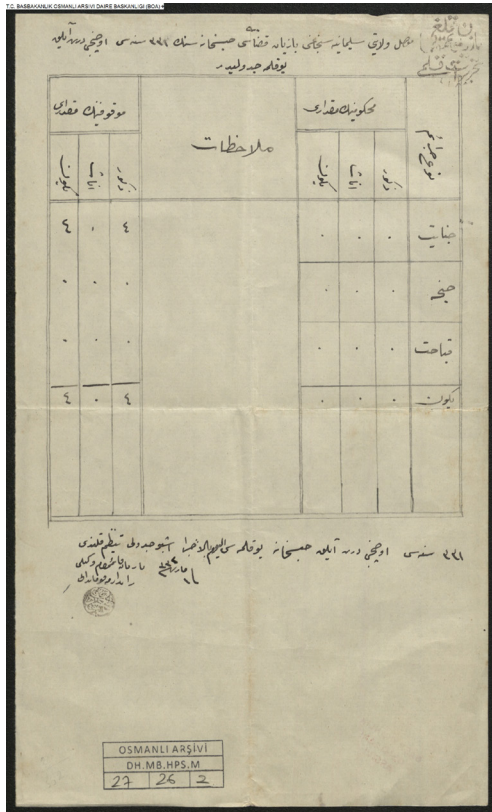 T.C. BASBAKANLIK OSMANLI ARSIVI DAIRE BASKANLIGI (BOA)
موصل ولايتى سليمانيه سنجاغى بازيان قضاسى حبسخانه سنك ٣٣١ سنه سى اوچنجى درت آيلق
يوقلمه جدوليدر
نوع جرائم
محكومينك مقدارى
ملاحظات
موقوفينك مقدارى
ذكور اناث يكون
ذكور اناث يكون
جنايت ٠ ٠ ٠ ٤ ٠ ٤
جنحه ٠ ٠ ٠ ٠ ٠
قباحت ٠ ٠ ٠ ٠ ٠
يكون ٠ ٠ ٠ ٤ ٠ ٤
٣٣١ سنه سى اوچنجى درت آيلق حبسخانه يوقلمه سى بالاجرا اشبو جدول تنظيم قلندى
OSMANLI ARŞİVİ
DH.MB.HPS.M
27 26 2